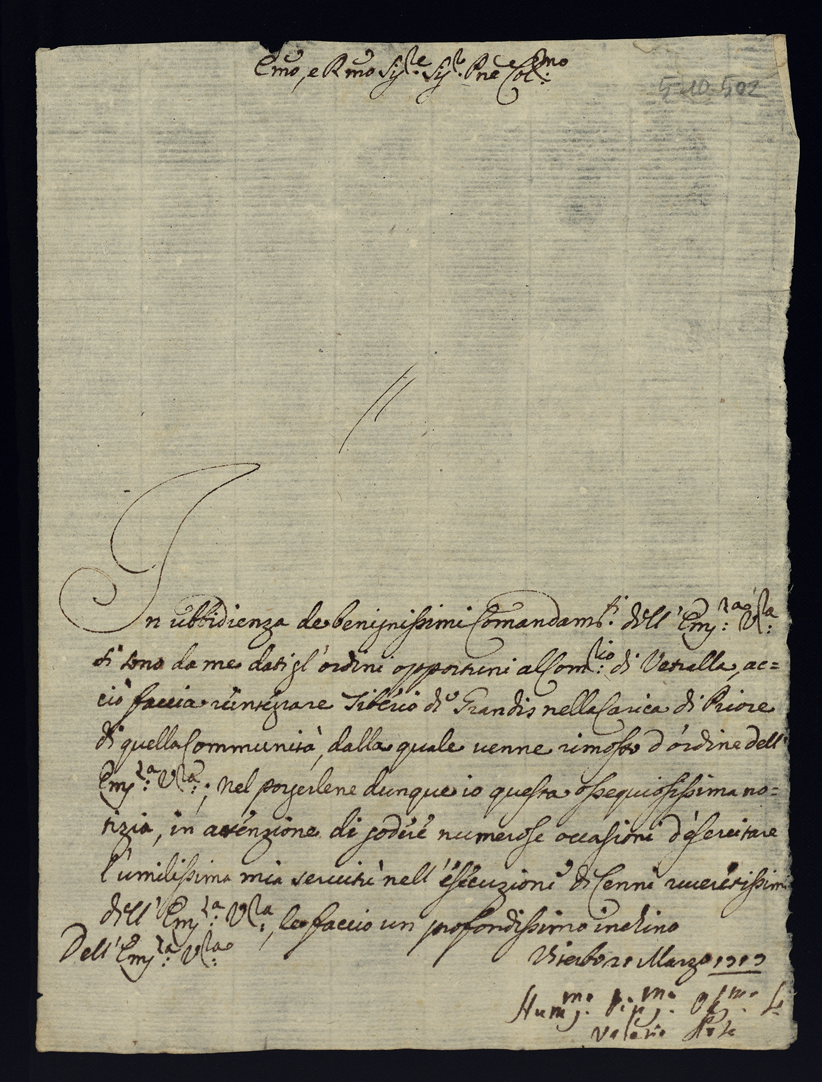 Emo, e Rmo Sig.re Sig.r Pne Col.mo
5-10-502
In ubbidienza de benignissimi Comandam.ti dell' Em.za V.ra
si sono da me dati gl' ordini opportuni al Com.rio di Vetralla, ac=
ciò faccia reintegrare Tiberio de Grandis nella Carica di Priore
di quella Communità, dalla quale venne rimosso d'ordine dell'
Em.za V.ra; nel porgerlene dunque io questa ossequiosissima no=
tizia, in attenzione di godere numerose occasioni d'esercitare
l'umilissima mia servitù nell' essecuzione de Cenni riveritissimi
dell' Em.za V.ra, le faccio un profondissimo inchino
Dell' Em.za V.ra
Viterbo 21 Marzo
Hum.mo Obl.mo
Valerio